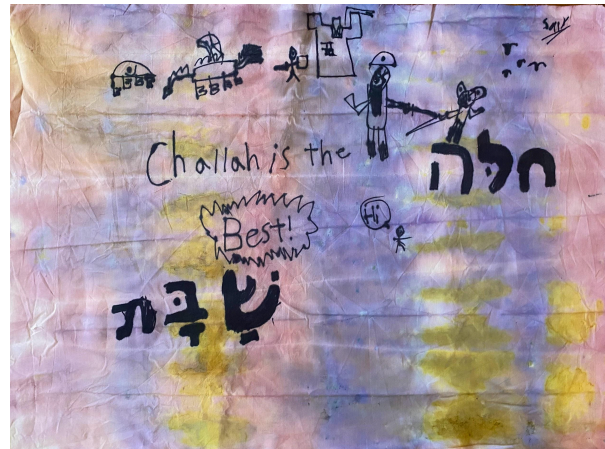 Challah is the
חלה
Best!
Hi
שַׁבָּת